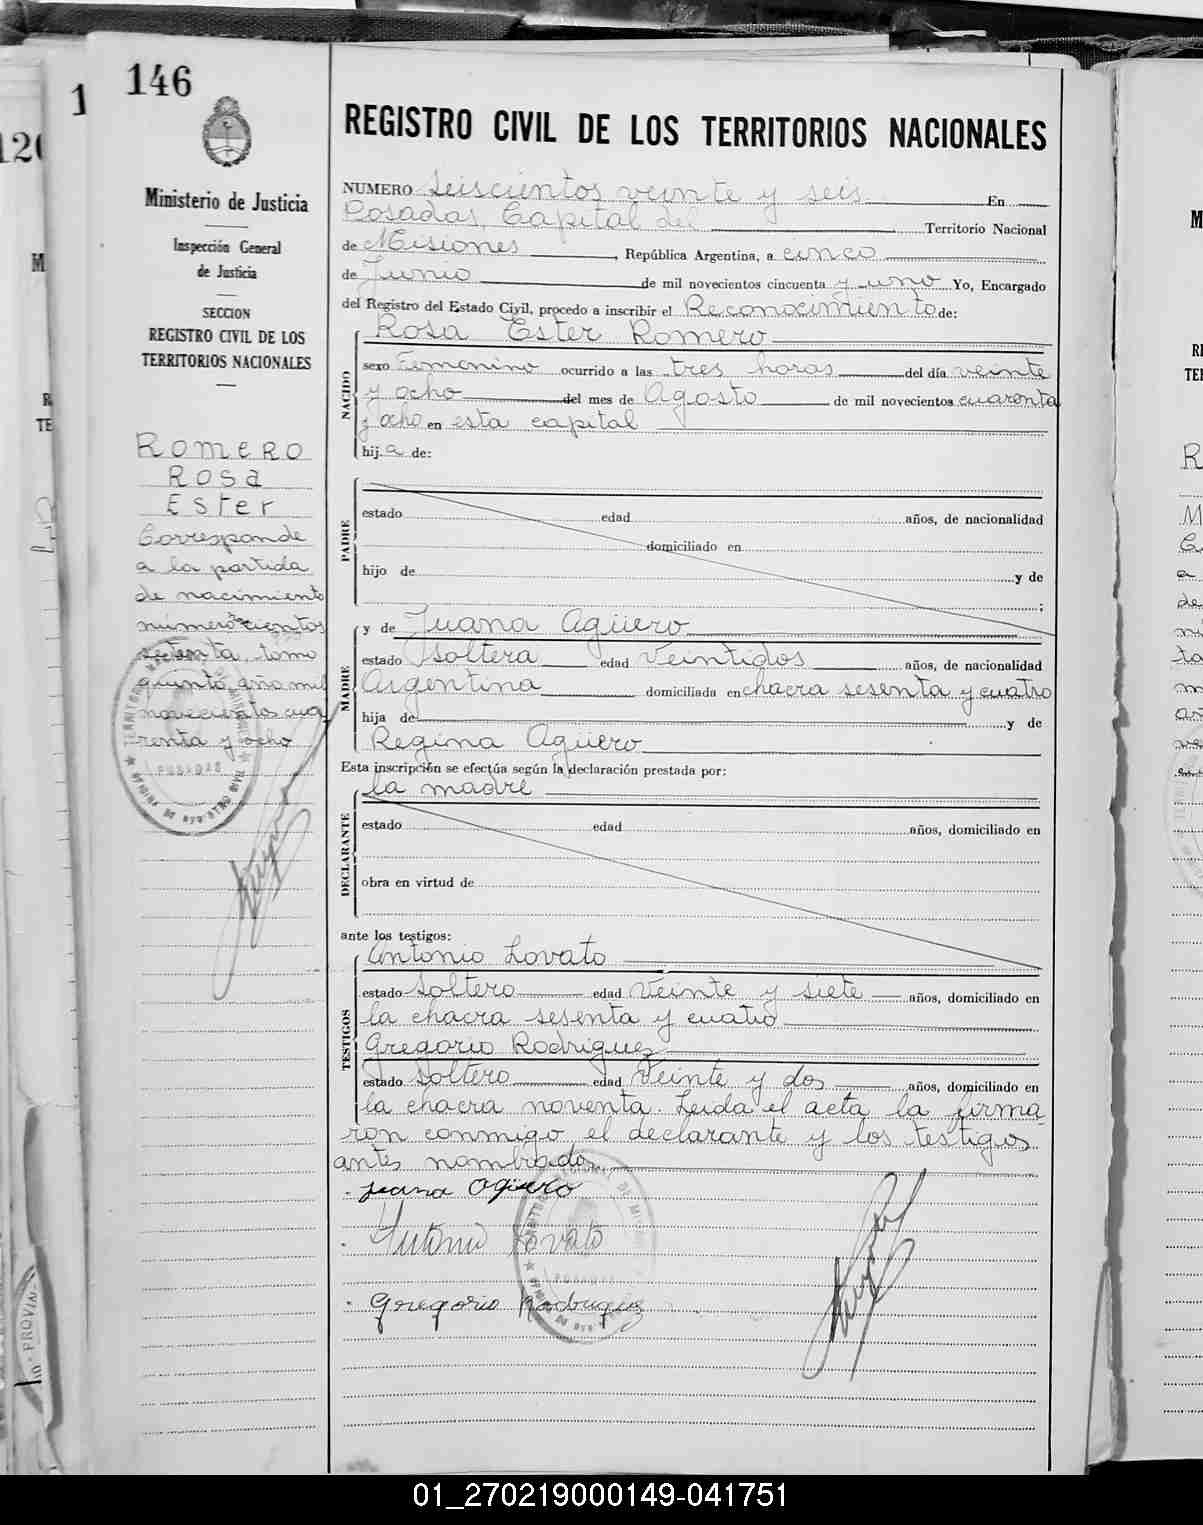 146
Ministerio de Justicia
Inspección General
de Justicia
SECCION
REGISTRO CIVIL DE LOS
TERRITORIOS NACIONALES
Romero
Rosa
Ester
Corresponde
a la partida
de nacimiento
número cientos
setenta, tomo
quinto, año mil
novecientos cua
renta y ocho
REGISTRO CIVIL DE LOS TERRITORIOS NACIONALES
NUMERO Seiscientos veinte y seis En
Posadas, Capital del Territorio Nacional
de Misiones, República Argentina, a cinco
de Junio de mil novecientos cincuenta y uno Yo, Encargado
del Registro del Estado Civil, procedo a inscribir el Reconocimiento de:
NACIDO
Rosa Ester Romero
sexo Femenino ocurrido a las tres horas del día veinte
y ocho del mes de Agosto de mil novecientos cuarenta
y ocho en esta capital
hij.a de:
PADRE
estado edad años, de nacionalidad
domiciliado en
hijo de y de
;
MADRE
y de Juana Agüero
estado Soltera edad Veintidos años, de nacionalidad
Argentina domiciliada en chacra sesenta y cuatro
hija de y de
Regina Agüero
Esta inscripción se efectúa según la declaración prestada por:
DECLARANTE
la madre
estado edad años, domiciliado en
obra en virtud de
ante los testigos:
TESTIGOS
Antonio Lovato
estado Soltero edad Veinte y siete años, domiciliado en
la chacra sesenta y cuatro
Gregorio Rodriguez
estado Soltero edad Veinte y dos años, domiciliado en
la chacra noventa. Leida el acta la firma
ron conmigo el declarante y los testigos
antes nombrado
Juana Agüero
Antonio Lovato
Gregorio Rodriguez
01_270219000149-041751